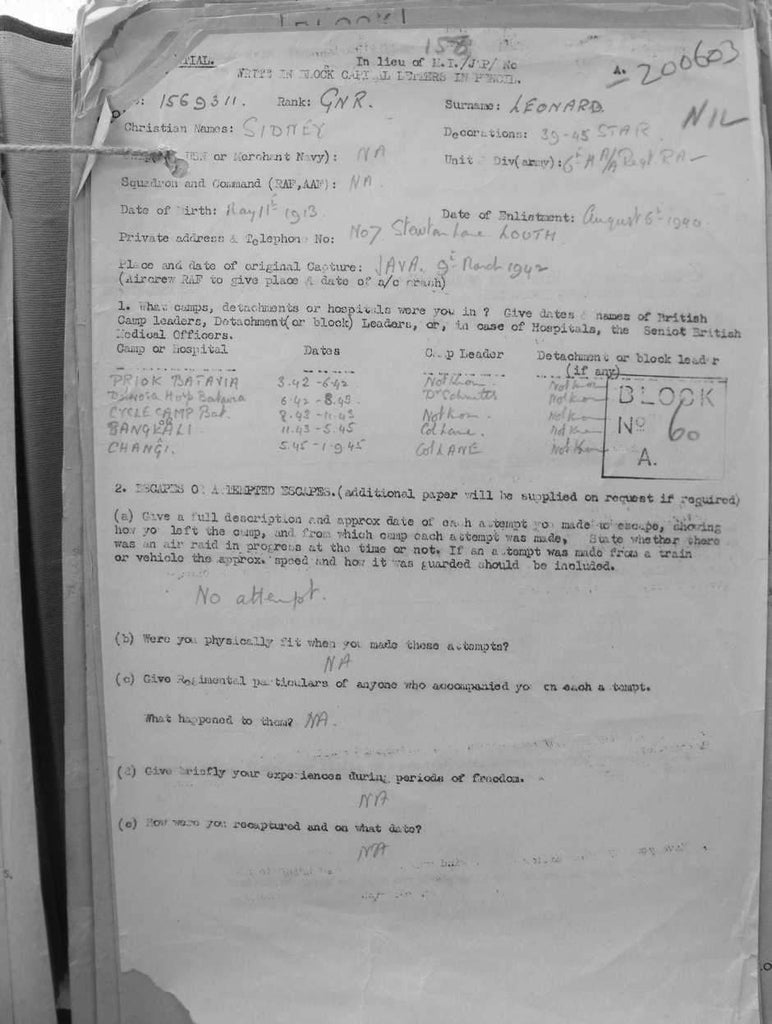 158
TIAL. In lieu of M.I./JP/ No A. 200603
WRITE IN BLOCK CAPITAL LETTERS IN PENCIL.
1569311. Rank: GNR. Surname: LEONARD.
NIL
Christian Names: SIDNEY Decorations: 39-45 STAR
(RN or Merchant Navy): NA Unit & Div(army): 6th HA/A Regt RA
Squadron and Command (RAF,AAF): NA
Date of Birth: May 11t 1913 Date of Enlistment: August 6t 1940
Private address & Telephone No: No 7 Stewton Lane LOUTH
Place and date of original Capture: JAVA. 9t March 1942
(Aircrew RAF to give place & date of a/c crash)
1. What camps, detachments or hospitals were you in ? Give dates & names of British
Camp leaders, Detachment(or block) Leaders, or, in case of Hospitals, the Senior British
Medical Officers.
Camp or Hospital Dates Camp Leader Detachment or block leader
(if any)
PRIOK BATAVIA 3.42 - 6.42 Not Known Not Known
Hosp Batavia 6.42 - 8.43. Dr Not Known
CYCLE CAMP Bat. 8.43 - 11.43 Not Known Not Known
11.43 - 5.45 Col Lane. Not Known
CHANGI. 5.45 - 1.9.45 Col LANE Not Known
BLOCK
No 60
A.
2. ESCAPES OR ATTEMPTED ESCAPES.(additional paper will be supplied on request if required)
(a) Give a full description and approx date of each attempt you made to escape, showing
how you left the camp, and from which camp each attempt was made, State whether there
was an air raid in progress at the time or not. If an attempt was made from a train
or vehicle the approx. speed and how it was guarded should be included.
No attempt.
(b) Were you physically fit when you made these attempts?
NA
(c) Give Regimental particulars of anyone who accompanied you on each attempt.
What happened to them? NA.
(d) Give briefly your experiences during periods of freedom.
NA
(e) How were you recaptured and on what date?
NA